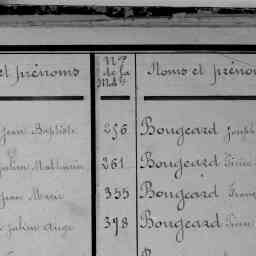 et prénoms Nº de la Mde Noms et préno
Jean Baptiste 256 Bougeard Joseph
Julien Mathurin 261 Bougeard Pierre
Jean Marie 355 Bougeard Franç
Julien Ange 378 Bougeard Pierre